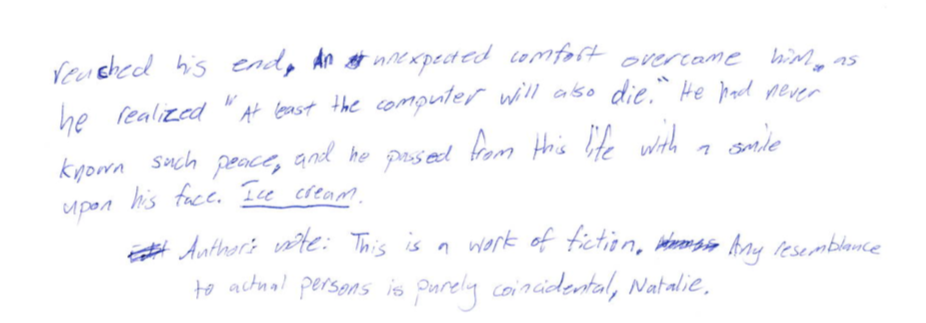 reached his end, An unexpected comfort overcame him, as
he realized "At least the computer will also die." He had never
known such peace, and he passed from this life with a smile
upon his face. Ice cream.
Author's note: This is a work of fiction. Any resemblance
to actual persons is purely coincidental, Natalie.